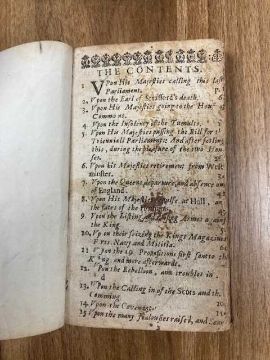 THE CONTENTS.
1 Vpon His Majesties calling this last
Parliament. p.
2. Vpon the Earl of Strafford's death.
3 Vpon His Majesties going to the House of
Commons.
4. Vpon the Insolency of the Tumults.
5. Vpon His Majesties passing the Bill for the
Trienniall Parliaments: And after setling
this, during the pleasure of the two Hou-
ses.
6 Vpon his Majesties retirement from West-
minster.
7. Vpon the Queens departure, and absence out
of England.
8 Vpon His Majesties repulse at Hull, and
the fates of the Hothams.
9 Vpon the Listing and raising Armes against
the King.
10 Vpon their seizing the Kings Magazines
Forts Navy and Militia.
11 Vpon the 19. Propositions first sent to the
King and more afterwards.
12 Vpon the Rebellion, and troubles in
d
13. Vpon the Calling in of the Scots and their
Comming
14 Vpon the Covenant.
15 Vpon the many Jealousies raised, and